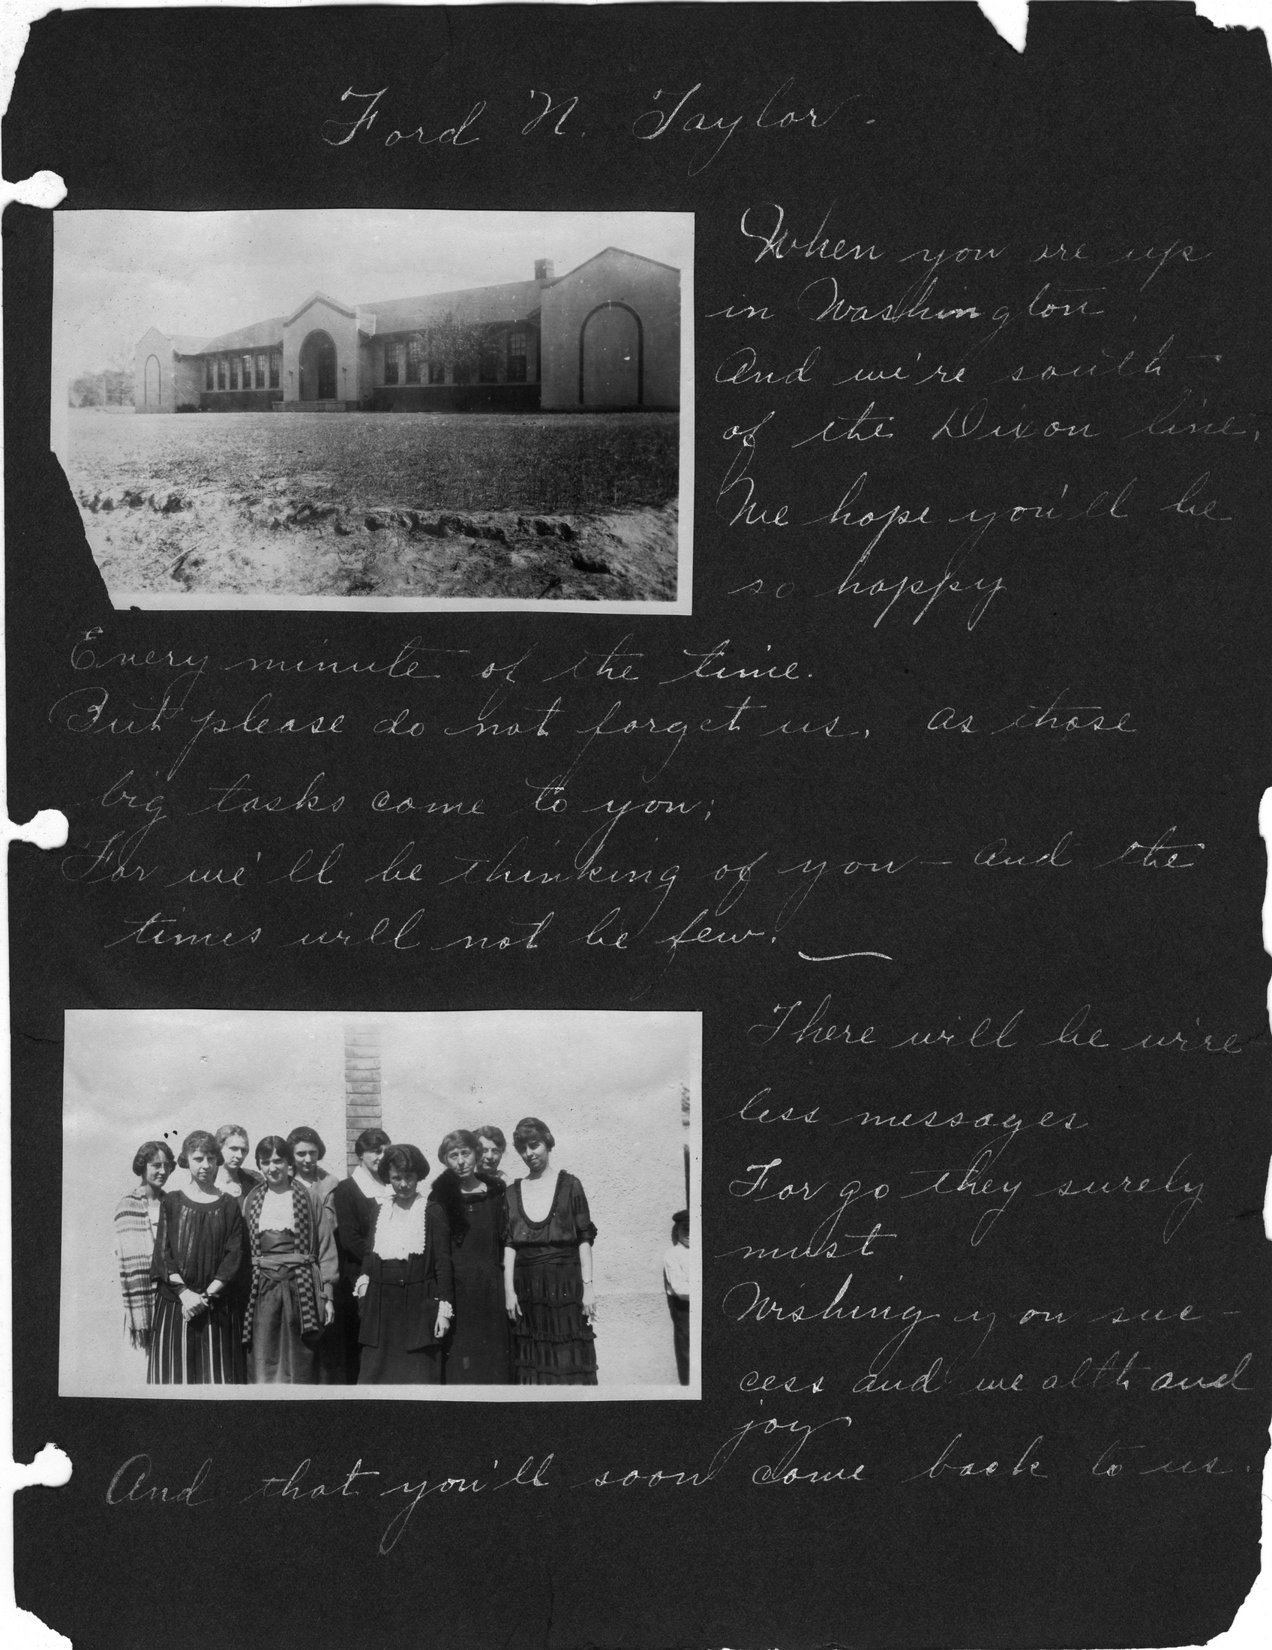 Ford N. Taylor.
When you are up
in Washington,
And we're south
of the Dixon line,
We hope you'll be
so happy
Every minute of the time.
But please do not forget us, as those
big tasks come to you;
For we'll be thinking of you — and the
times will not be few.
There will be wire
less messages
For go they surely
must
Wishing you suc-
cess and wealth and
joy
And that you'll soon come back to us.